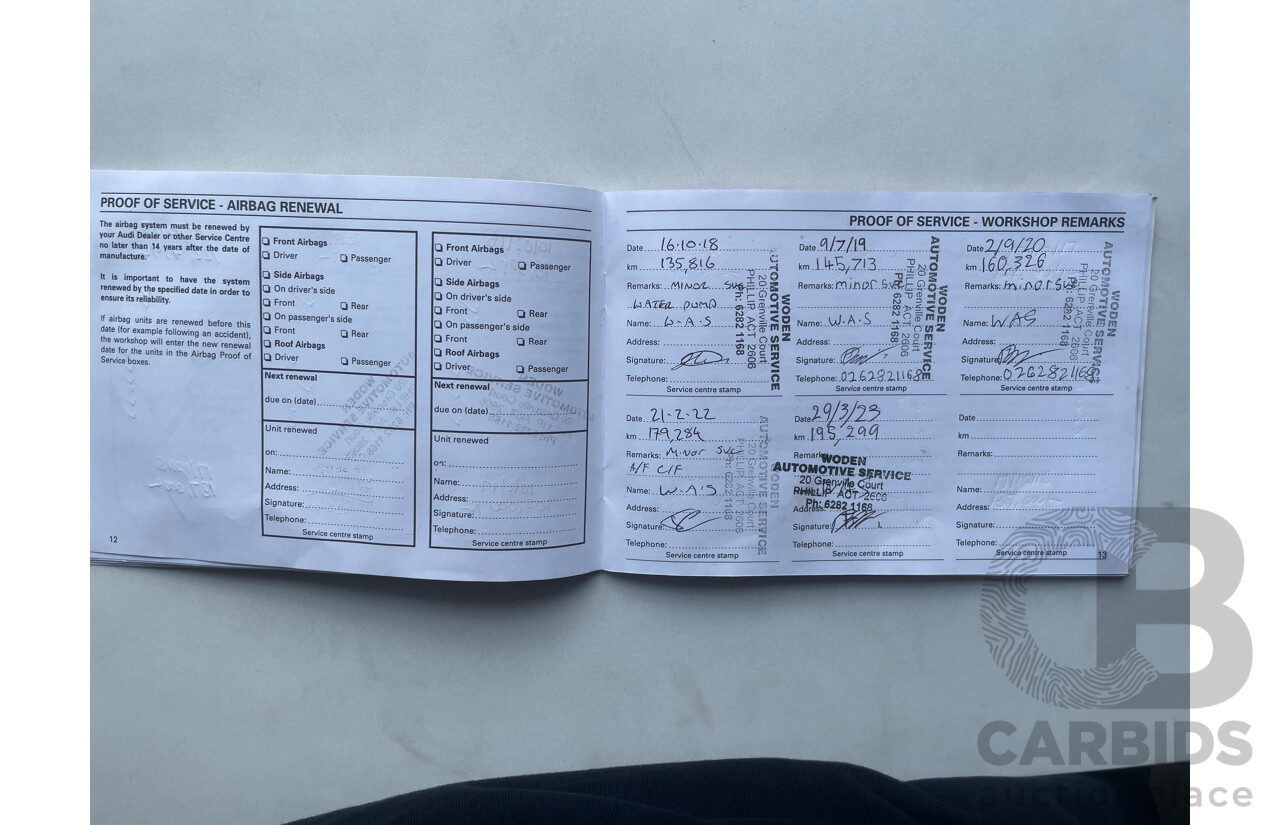 PROOF OF SERVICE - AIRBAG RENEWAL
The airbag system must be renewed by
your Audi Dealer or other Service Centre
no later than 14 years after the date of
manufacture.
It is important to have the system
renewed by the specified date in order to
ensure its reliability.
If airbag units are renewed before this
date (for example following an accident),
the workshop will enter the new renewal
date for the units in the Airbag Proof of
Service boxes.
12
Front Airbags
Driver Passenger
Side Airbags
On driver's side
Front Rear
On passenger's side
Front Rear
Roof Airbags
Driver Passenger
Next renewal
due on (date)
Unit renewed
on:
Name:
Address:
Signature:
Telephone:
Service centre stamp
Front Airbags
Driver Passenger
Side Airbags
On driver's side
Front Rear
On passenger's side
Front Rear
Roof Airbags
Driver Passenger
Next renewal
due on (date)
Unit renewed
on:
Name:
Address:
Signature:
Telephone:
Service centre stamp
PROOF OF SERVICE - WORKSHOP REMARKS
Date 16.10.18
km 135,816
Remarks: MINOR SVC
WATER PUMP
Name: W.A.S
Address:
Signature:
Telephone:
Service centre stamp
WODEN
AUTOMOTIVE SERVICE
20 Grenville Court
PHILLIP ACT 2606
Ph: 6282 1168
Date 9/7/19
km 145,713
Remarks: minor svc
Name: W.A.S
Address:
Signature:
Telephone: 0262821168
Service centre stamp
WODEN
AUTOMOTIVE SERVICE
20 Grenville Court
PHILLIP ACT 2606
Ph: 6282 1168
Date 2/9/20
km 160,326
Remarks: minor svc
Name: WAS
Address:
Signature:
Telephone: 0262821168
Service centre stamp
WODEN
AUTOMOTIVE SERVICE
20 Grenville Court
PHILLIP ACT 2606
Ph: 6282 1168
Date 21.2.22
km 179,284
Remarks: Minor SVC
A/F C/F
Name: W.A.S
Address:
Signature:
Telephone:
Service centre stamp
WODEN
AUTOMOTIVE SERVICE
20 Grenville Court
PHILLIP ACT 2606
Ph: 6282 1168
Date 29/3/23
km 195,299
Remarks:
WODEN
AUTOMOTIVE SERVICE
20 Grenville Court
PHILLIP ACT 2606
Ph: 6282 1168
Address:
Signature:
Telephone:
Service centre stamp
Date
km
Remarks:
Name:
Address:
Signature:
Telephone:
Service centre stamp
13
CB
CARBIDS
auction place